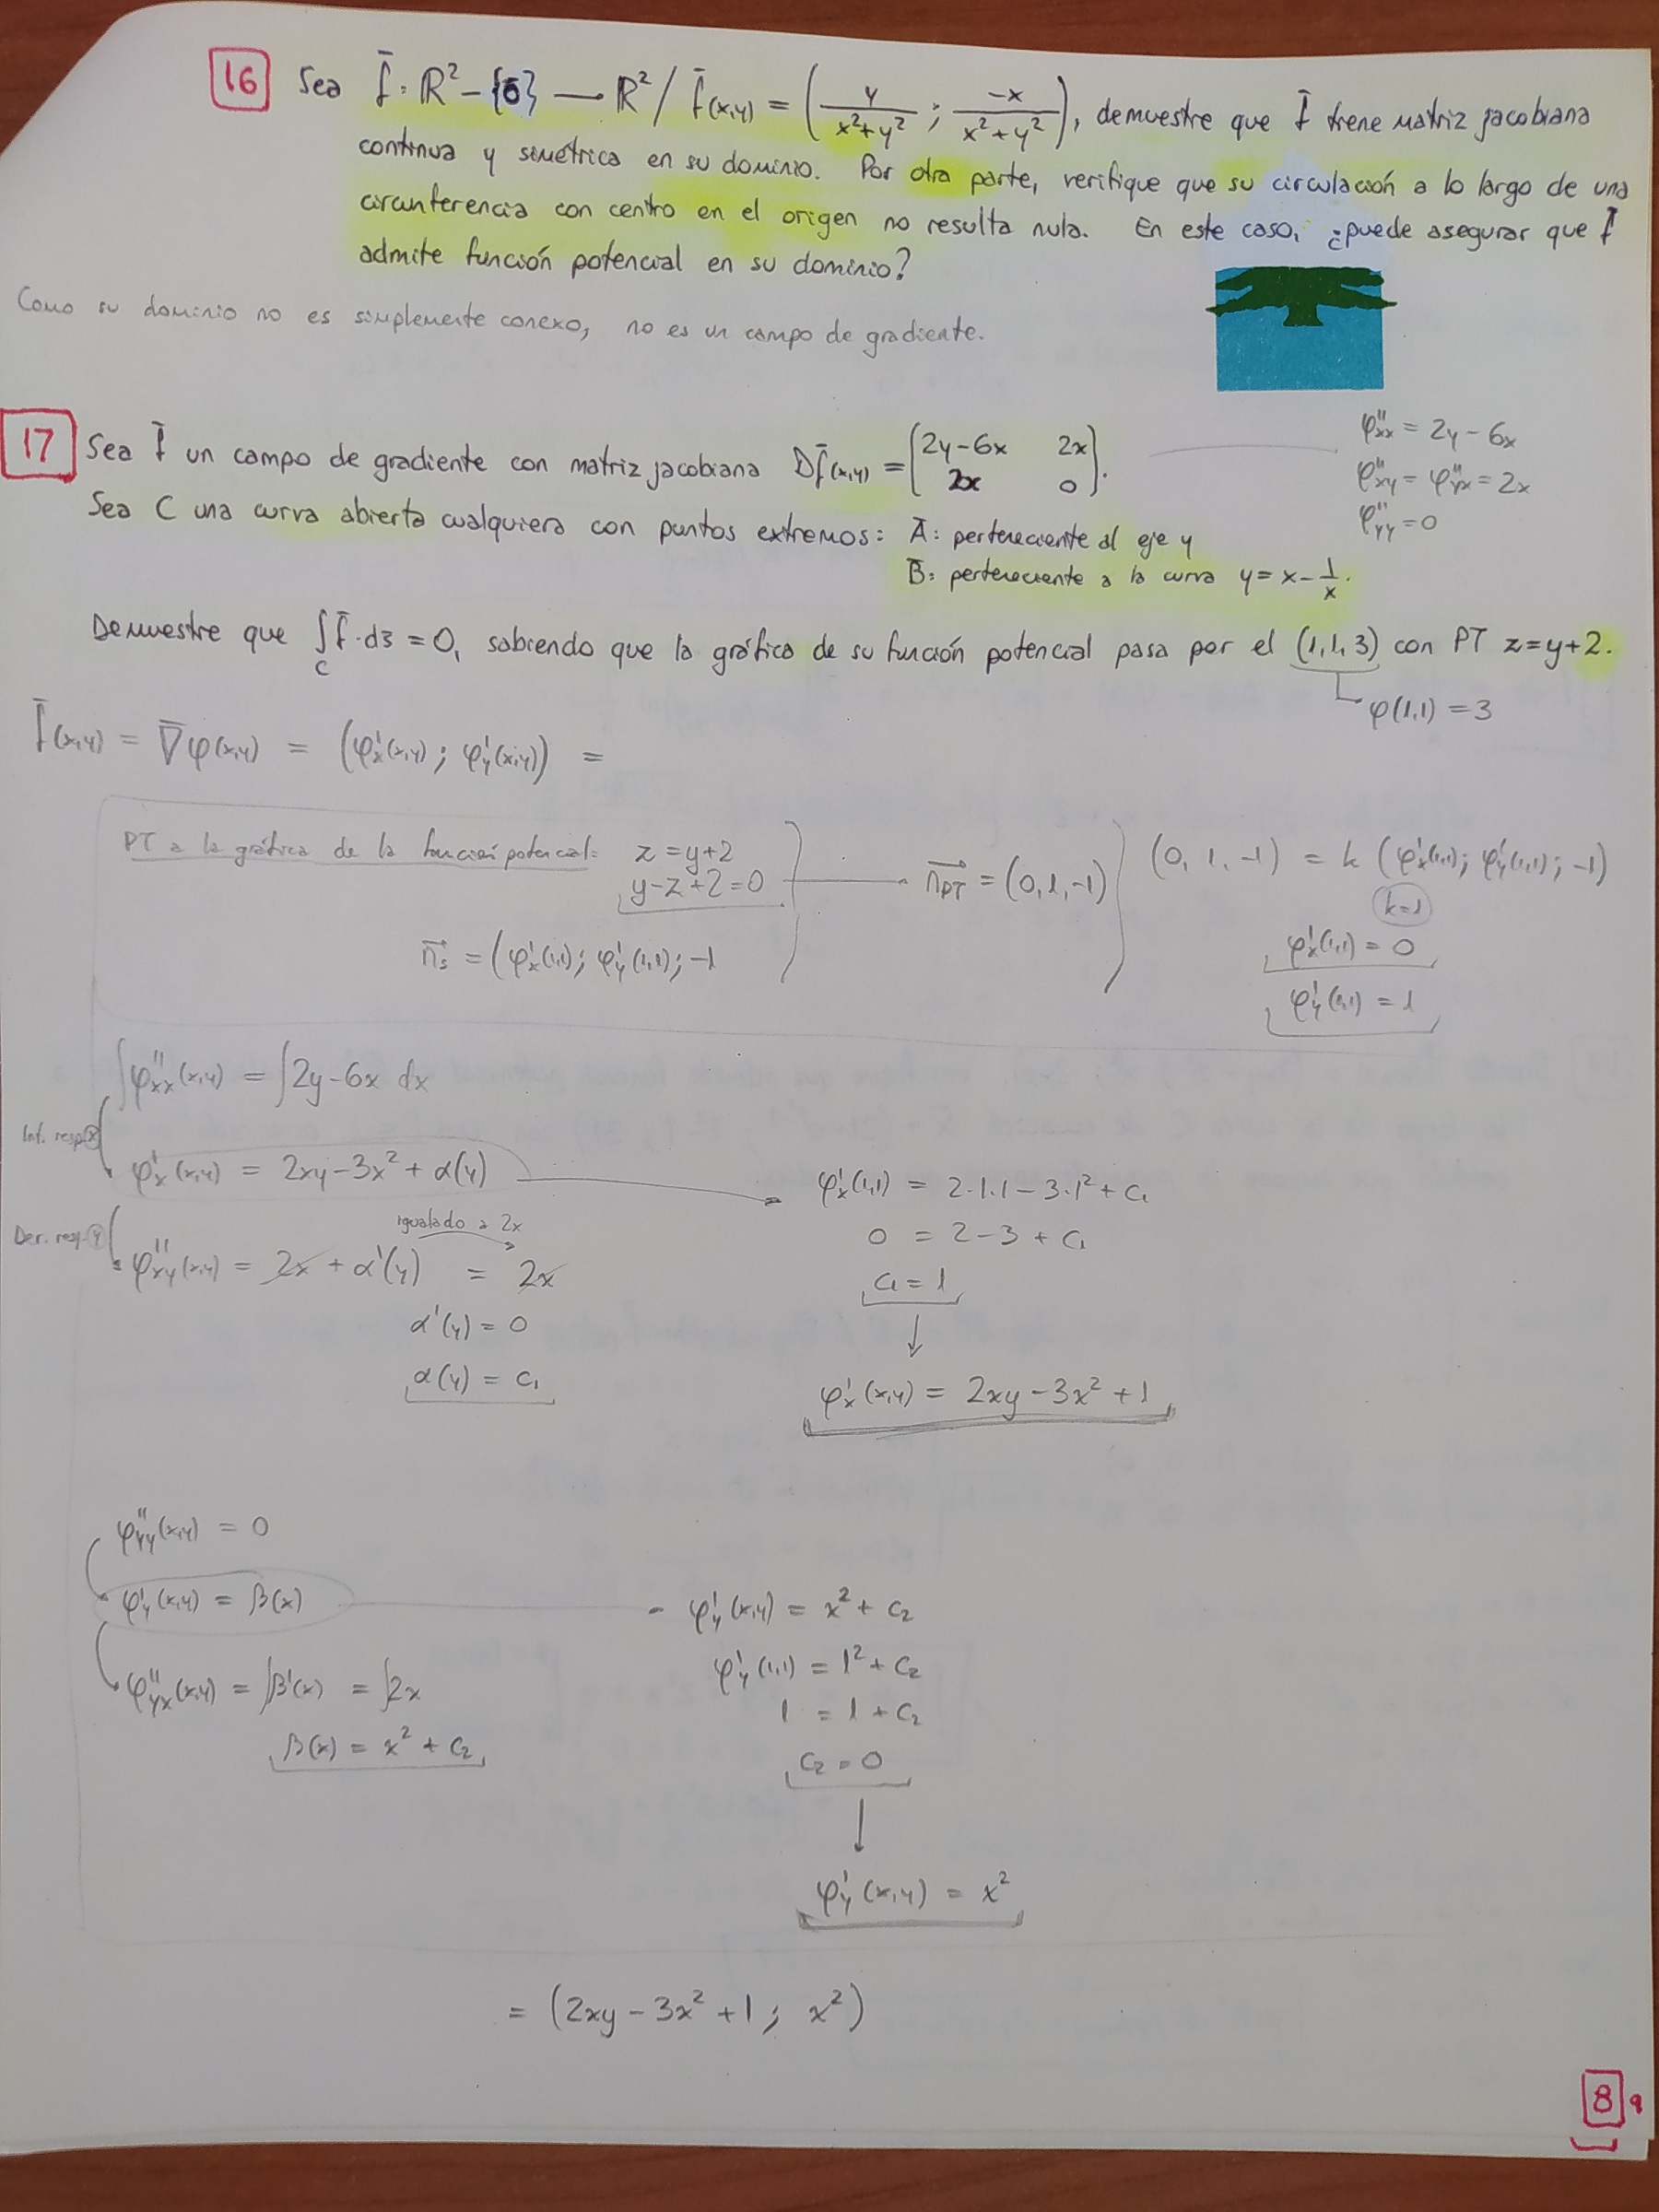 16 Sea f̄: ℝ² - {0̄} — ℝ² / f̄(x,y) = (y/(x²+y²) ; -x/(x²+y²)), demuestre que f̄ tiene matriz jacobiana
continua y simétrica en su dominio. Por otra parte, verifique que su circulación a lo largo de una
circunferencia con centro en el origen no resulta nula. En este caso, ¿puede asegurar que f̄
admite función potencial en su dominio?
Como su dominio no es simplemente conexo, no es un campo de gradiente.
17 Sea f̄ un campo de gradiente con matriz jacobiana Df̄(x,y) = (2y-6x 2x
2x 0).
φ''xx = 2y - 6x
φ''xy = φ''yx = 2x
φ''yy = 0
Sea C una curva abierta cualquiera con puntos extremos: Ā: perteneciente al eje y
B̄: perteneciente a la curva y = x - 1/x.
Demuestre que ∫C f̄·ds̄ = 0, sabiendo que la gráfica de su función potencial pasa por el (1,1,3) con PT z=y+2.
φ(1,1) = 3
f̄(x,y) = ∇̄φ(x,y) = (φ'x(x,y) ; φ'y(x,y)) =
PT a la gráfica de la función potencial: z = y+2
y-z+2=0
n⃗PT = (0,1,-1)
(0,1,-1) = k (φ'x(1,1); φ'y(1,1); -1)
k=1
n⃗s = (φ'x(1,1); φ'y(1,1); -1
φ'x(1,1) = 0
φ'y(1,1) = 1
∫φ''xx(x,y) = ∫2y-6x dx
Int. resp x
φ'x(x,y) = 2xy-3x² + α(y)
φ'x(1,1) = 2·1·1 - 3·1² + C₁
0 = 2-3 + C₁
C₁ = 1
φ'x(x,y) = 2xy - 3x² + 1
Der. resp y
igualado a 2x
φ''xy(x,y) = 2x + α'(y) = 2x
α'(y) = 0
α(y) = C₁
φ''yy(x,y) = 0
φ'y(x,y) = β(x)
φ''yx(x,y) = ∫β'(x) = ∫2x
β(x) = x² + C₂
φ'y(x,y) = x² + C₂
φ'y(1,1) = 1² + C₂
1 = 1 + C₂
C₂ = 0
φ'y(x,y) = x²
= (2xy - 3x² + 1 ; x²)
8 9